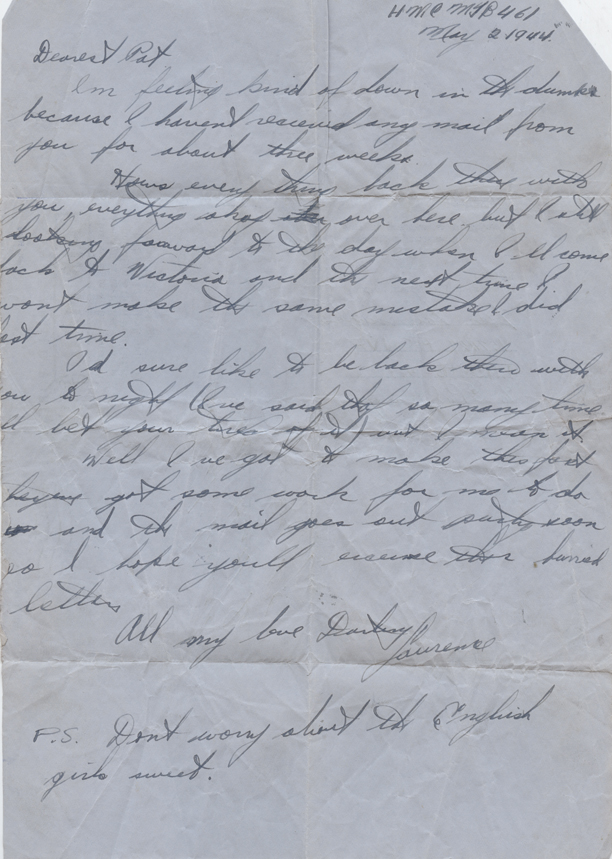 HMC MTB 461
May 2 1944.
Dearest Pat
Im feeling kind of down in the dumps
because I havent received any mail from
you for about three weeks.
Hows every thing back there with
you, everything okay over here but I still
looking forward to the day when I'll come
back to Victoria and the next time I
wont make the same mistake I did
last time.
I'd sure like to be back there with
you to night (I've said that so many time
I'll bet your tired of it) but I mean it
Well I've got to make this fast
got some work for me to do
and the mail goes out pretty soon
so I hope you'll excuse this
letter
All my love Darling
Laurence
P.S. Dont worry about the English
girls sweet.